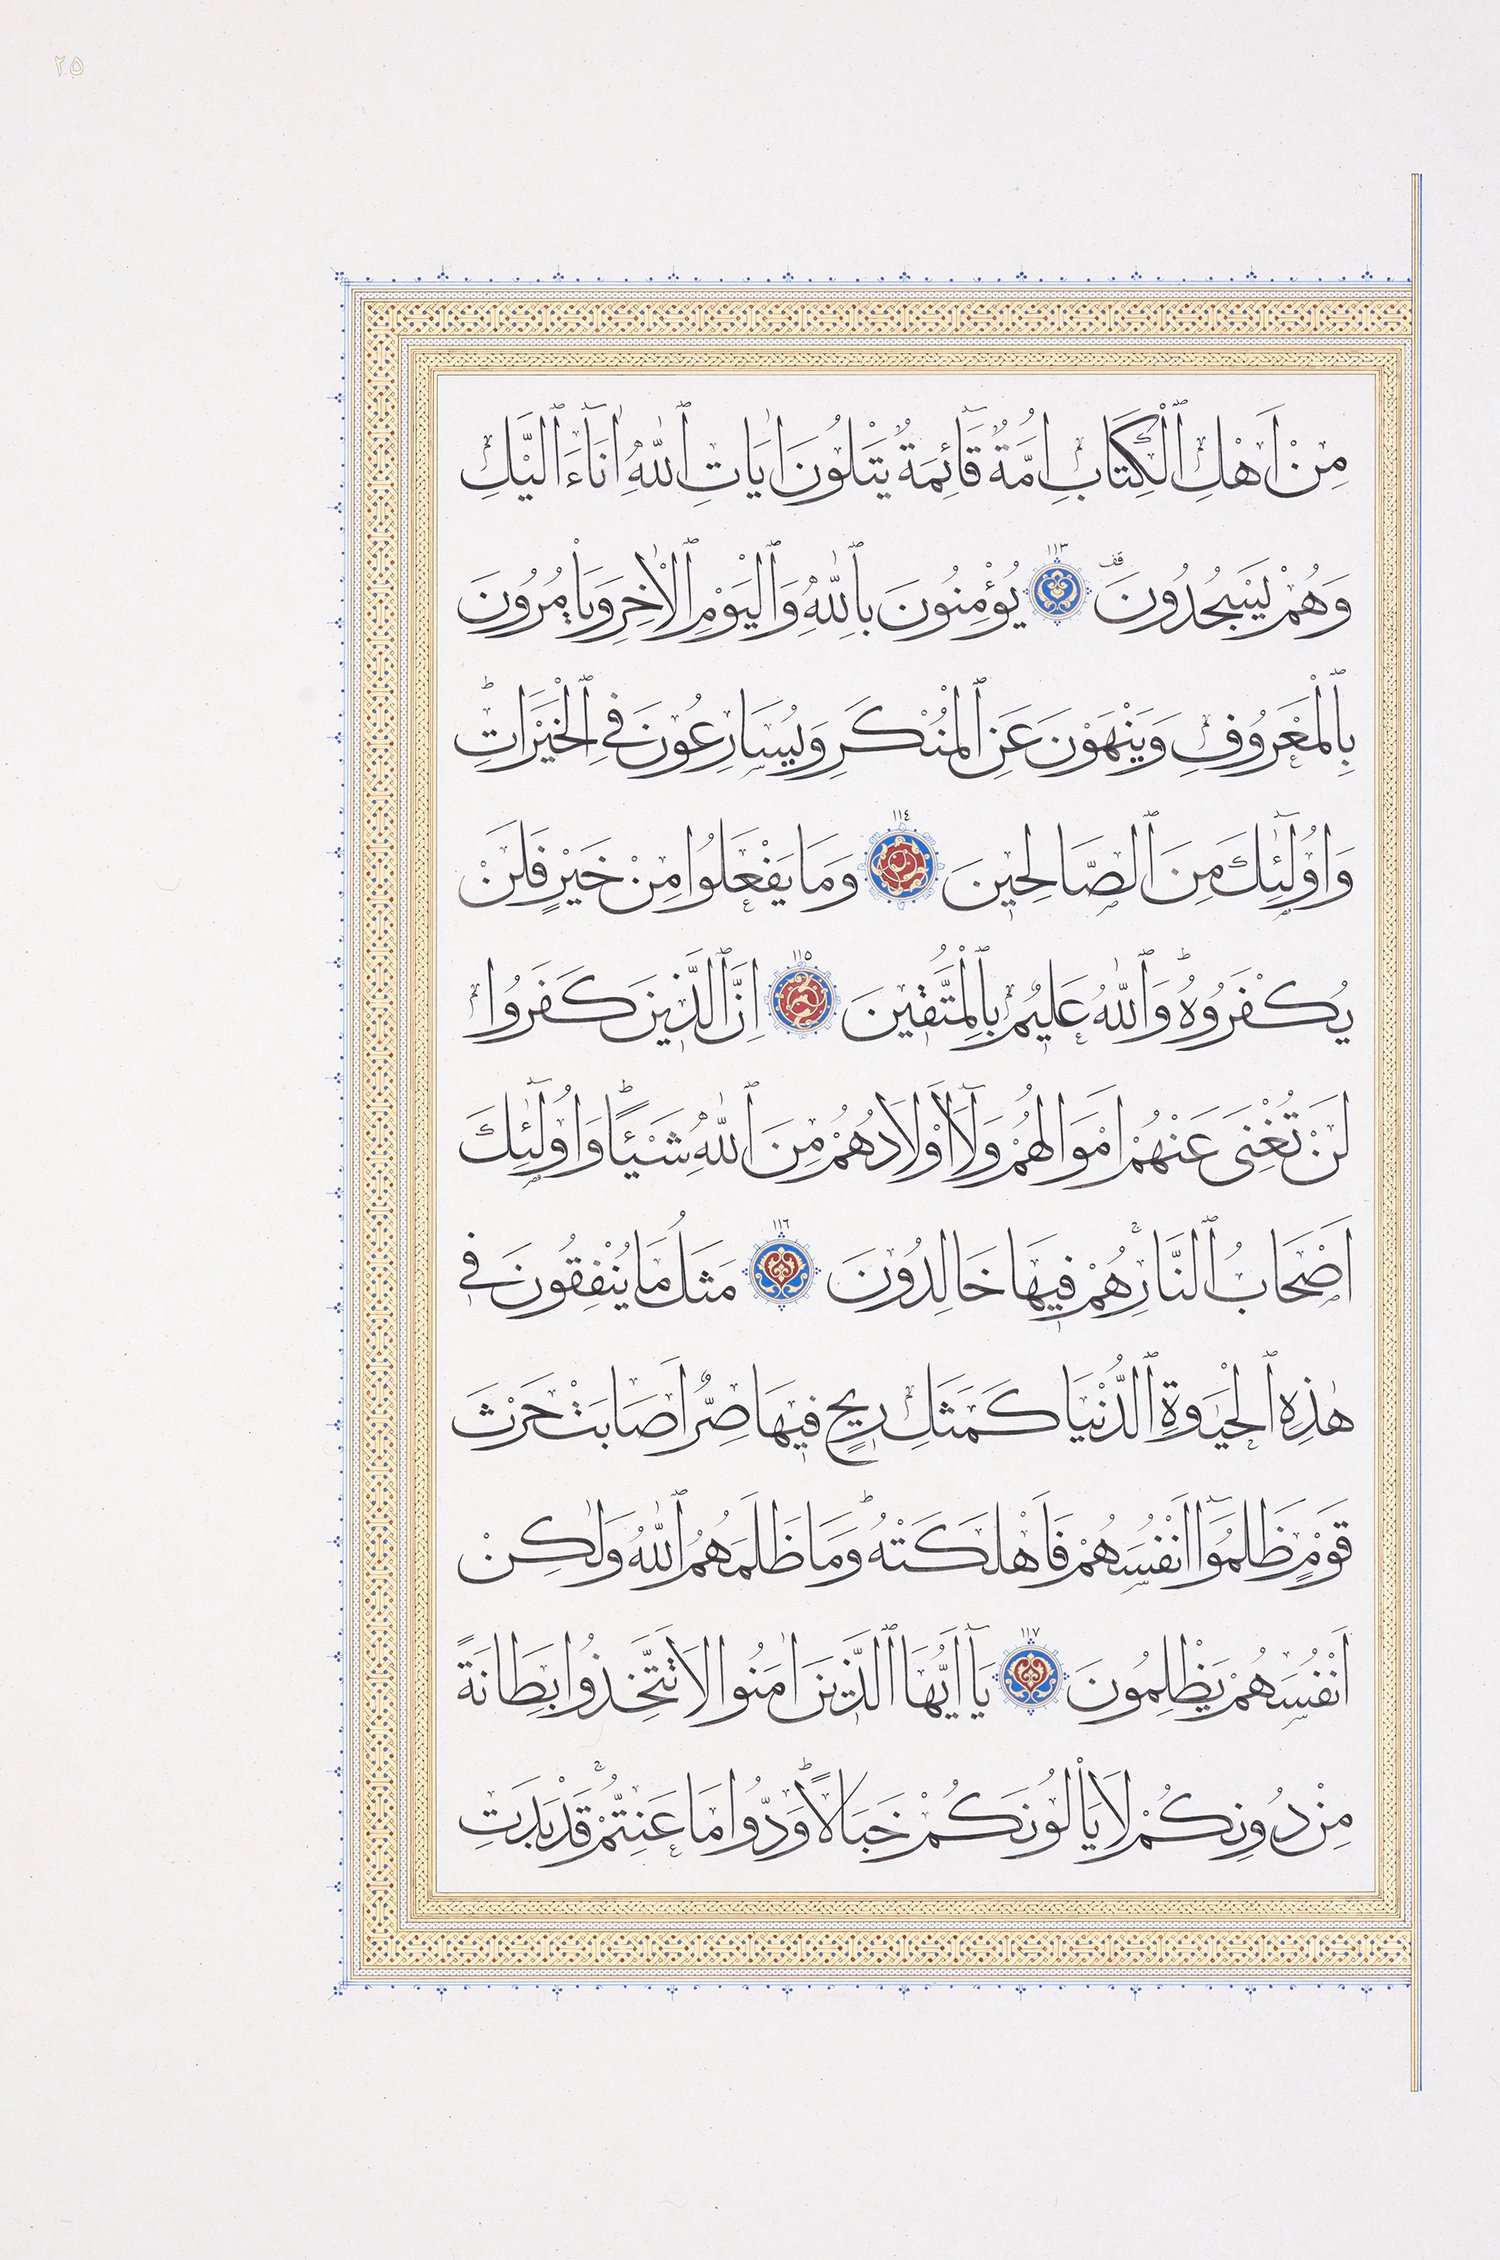 ٢٥
مِنْ اَهْلِ ٱلْكِتَابِ اُمَّةٌ قَٓائِمَةٌ يَتْلُونَ اٰيَاتِ ٱللّٰهِ اٰنَٓاءَ ٱلَّيْلِ
وَهُمْ يَسْجُدُونَ ۝١١٣ يُؤْمِنُونَ بِٱللّٰهِ وَٱلْيَوْمِ ٱلْاٰخِرِ وَيَأْمُرُونَ
بِٱلْمَعْرُوفِ وَيَنْهَوْنَ عَنِ ٱلْمُنْكَرِ وَيُسَارِعُونَ فِي ٱلْخَيْرَاتِۜ
وَاُولٰٓئِكَ مِنَ ٱلصَّالِحِينَ ۝١١٤ وَمَا يَفْعَلُوا مِنْ خَيْرٍ فَلَنْ
يُكْفَرُوهُۜ وَٱللّٰهُ عَلِيمٌ بِٱلْمُتَّقِينَ ۝١١٥ اِنَّ ٱلَّذِينَ كَفَرُوا
لَنْ تُغْنِىَ عَنْهُمْ اَمْوَالُهُمْ وَلَٓا اَوْلَادُهُمْ مِنَ ٱللّٰهِ شَيْئًاۜ وَاُولٰٓئِكَ
اَصْحَابُ ٱلنَّارِۚ هُمْ فِيهَا خَالِدُونَ ۝١١٦ مَثَلُ مَا يُنْفِقُونَ فِي
هٰذِهِ ٱلْحَيٰوةِ ٱلدُّنْيَا كَمَثَلِ رِيحٍ فِيهَا صِرٌّ اَصَابَتْ حَرْثَ
قَوْمٍ ظَلَمُٓوا اَنْفُسَهُمْ فَاَهْلَكَتْهُۜ وَمَا ظَلَمَهُمُ ٱللّٰهُ وَلٰكِنْ
اَنْفُسَهُمْ يَظْلِمُونَ ۝١١٧ يَٓا اَيُّهَا ٱلَّذِينَ اٰمَنُوا لَا تَتَّخِذُوا بِطَانَةً
مِنْ دُونِكُمْ لَا يَأْلُونَكُمْ خَبَالًاۜ وَدُّوا مَا عَنِتُّمْۚ قَدْ بَدَتِ